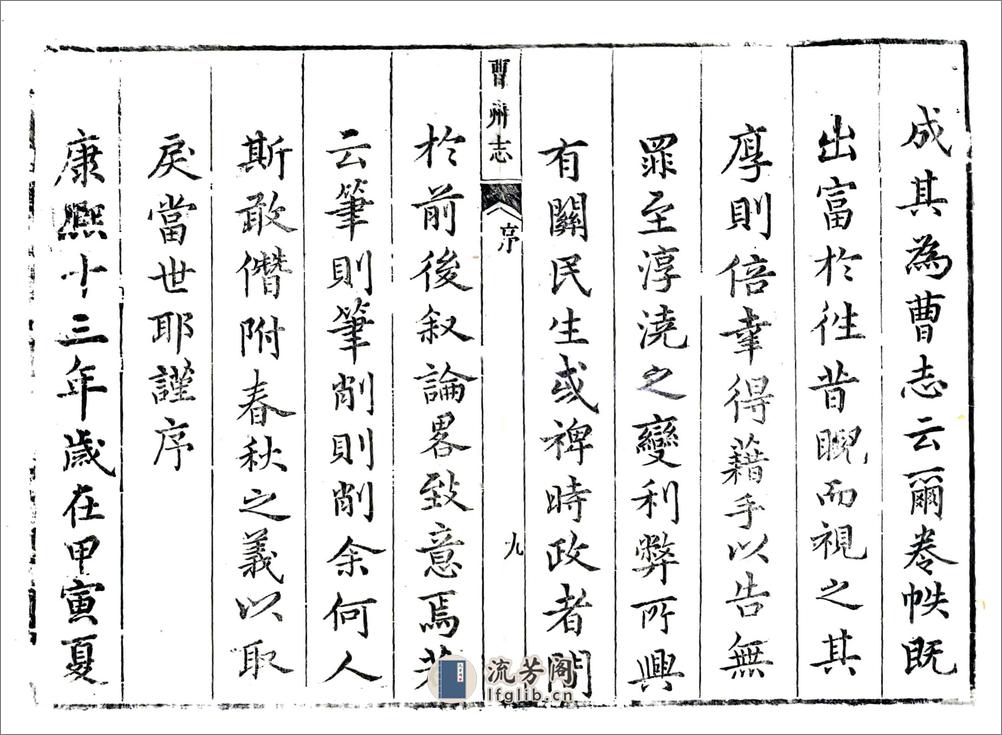 成其為曹志云爾卷帙既
出富於徃昔睨而視之其
厚則倍幸得藉手以告無
罪至淳澆之變利弊所興
有關民生或裨時政者間
曹州志
序
九
於前後叙論畧致意焉若
云筆則筆削則削余何人
斯敢僭附春秋之義以取
戾當世耶謹序
康熙十三年歲在甲寅夏
流芳阁
lfglib.cn